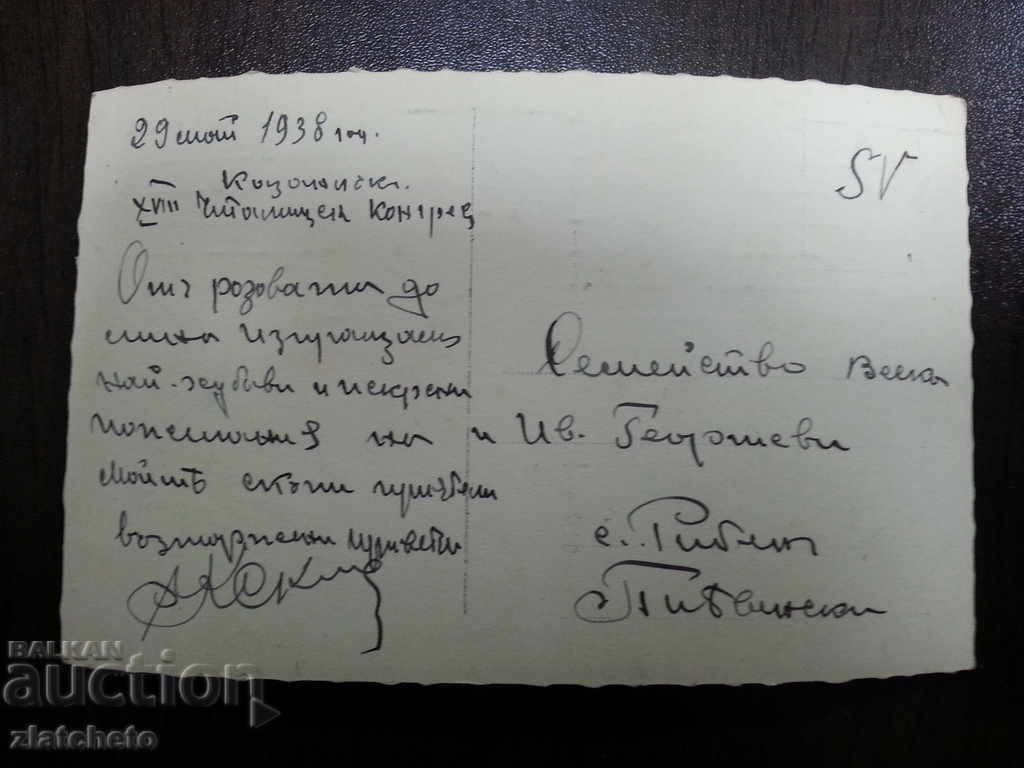 29 май 1938 год.
XVIII Читалищен Конгрес
Отъ розовата до
лина изпращамъ
най-хубави и искрени
пожелания на
Моитѣ скъпи приятели
възторжени привети
SV
Семейство Веска
и Ив. Георгиеви
с. Рибен
Плѣвенско
BALKAN
auction
zlatcheto